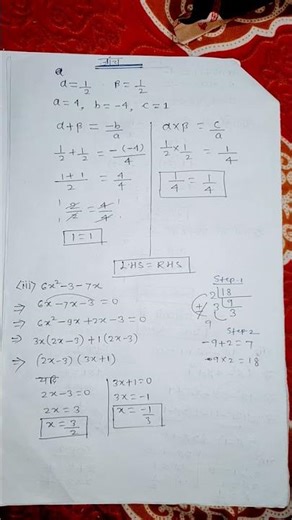 α = 1/2    β = 1/2
a = 4, b = -4, c = 1
α+β = -b/a
1/2 + 1/2 = -(-4)/4
1+1/2 = 4/4
2/2 = 4/4
1 = 1
α×β = c/a
1/2 × 1/2 = 1/4
1/4 = 1/4
LHS = RHS
(iii) 6x²-3-7x
⇒ 6x-7x-3=0
⇒ 6x²-9x+2x-3=0
⇒ 3x(2x-3)+1(2x-3)
⇒ (2x-3) (3x+1)
यदि
2x-3=0
2x=3
x = 3/2
3x+1=0
3x=-1
x = -1/3
Step-1
2 | 18
9
3
Step-2
-9+2=7
-9×2=18